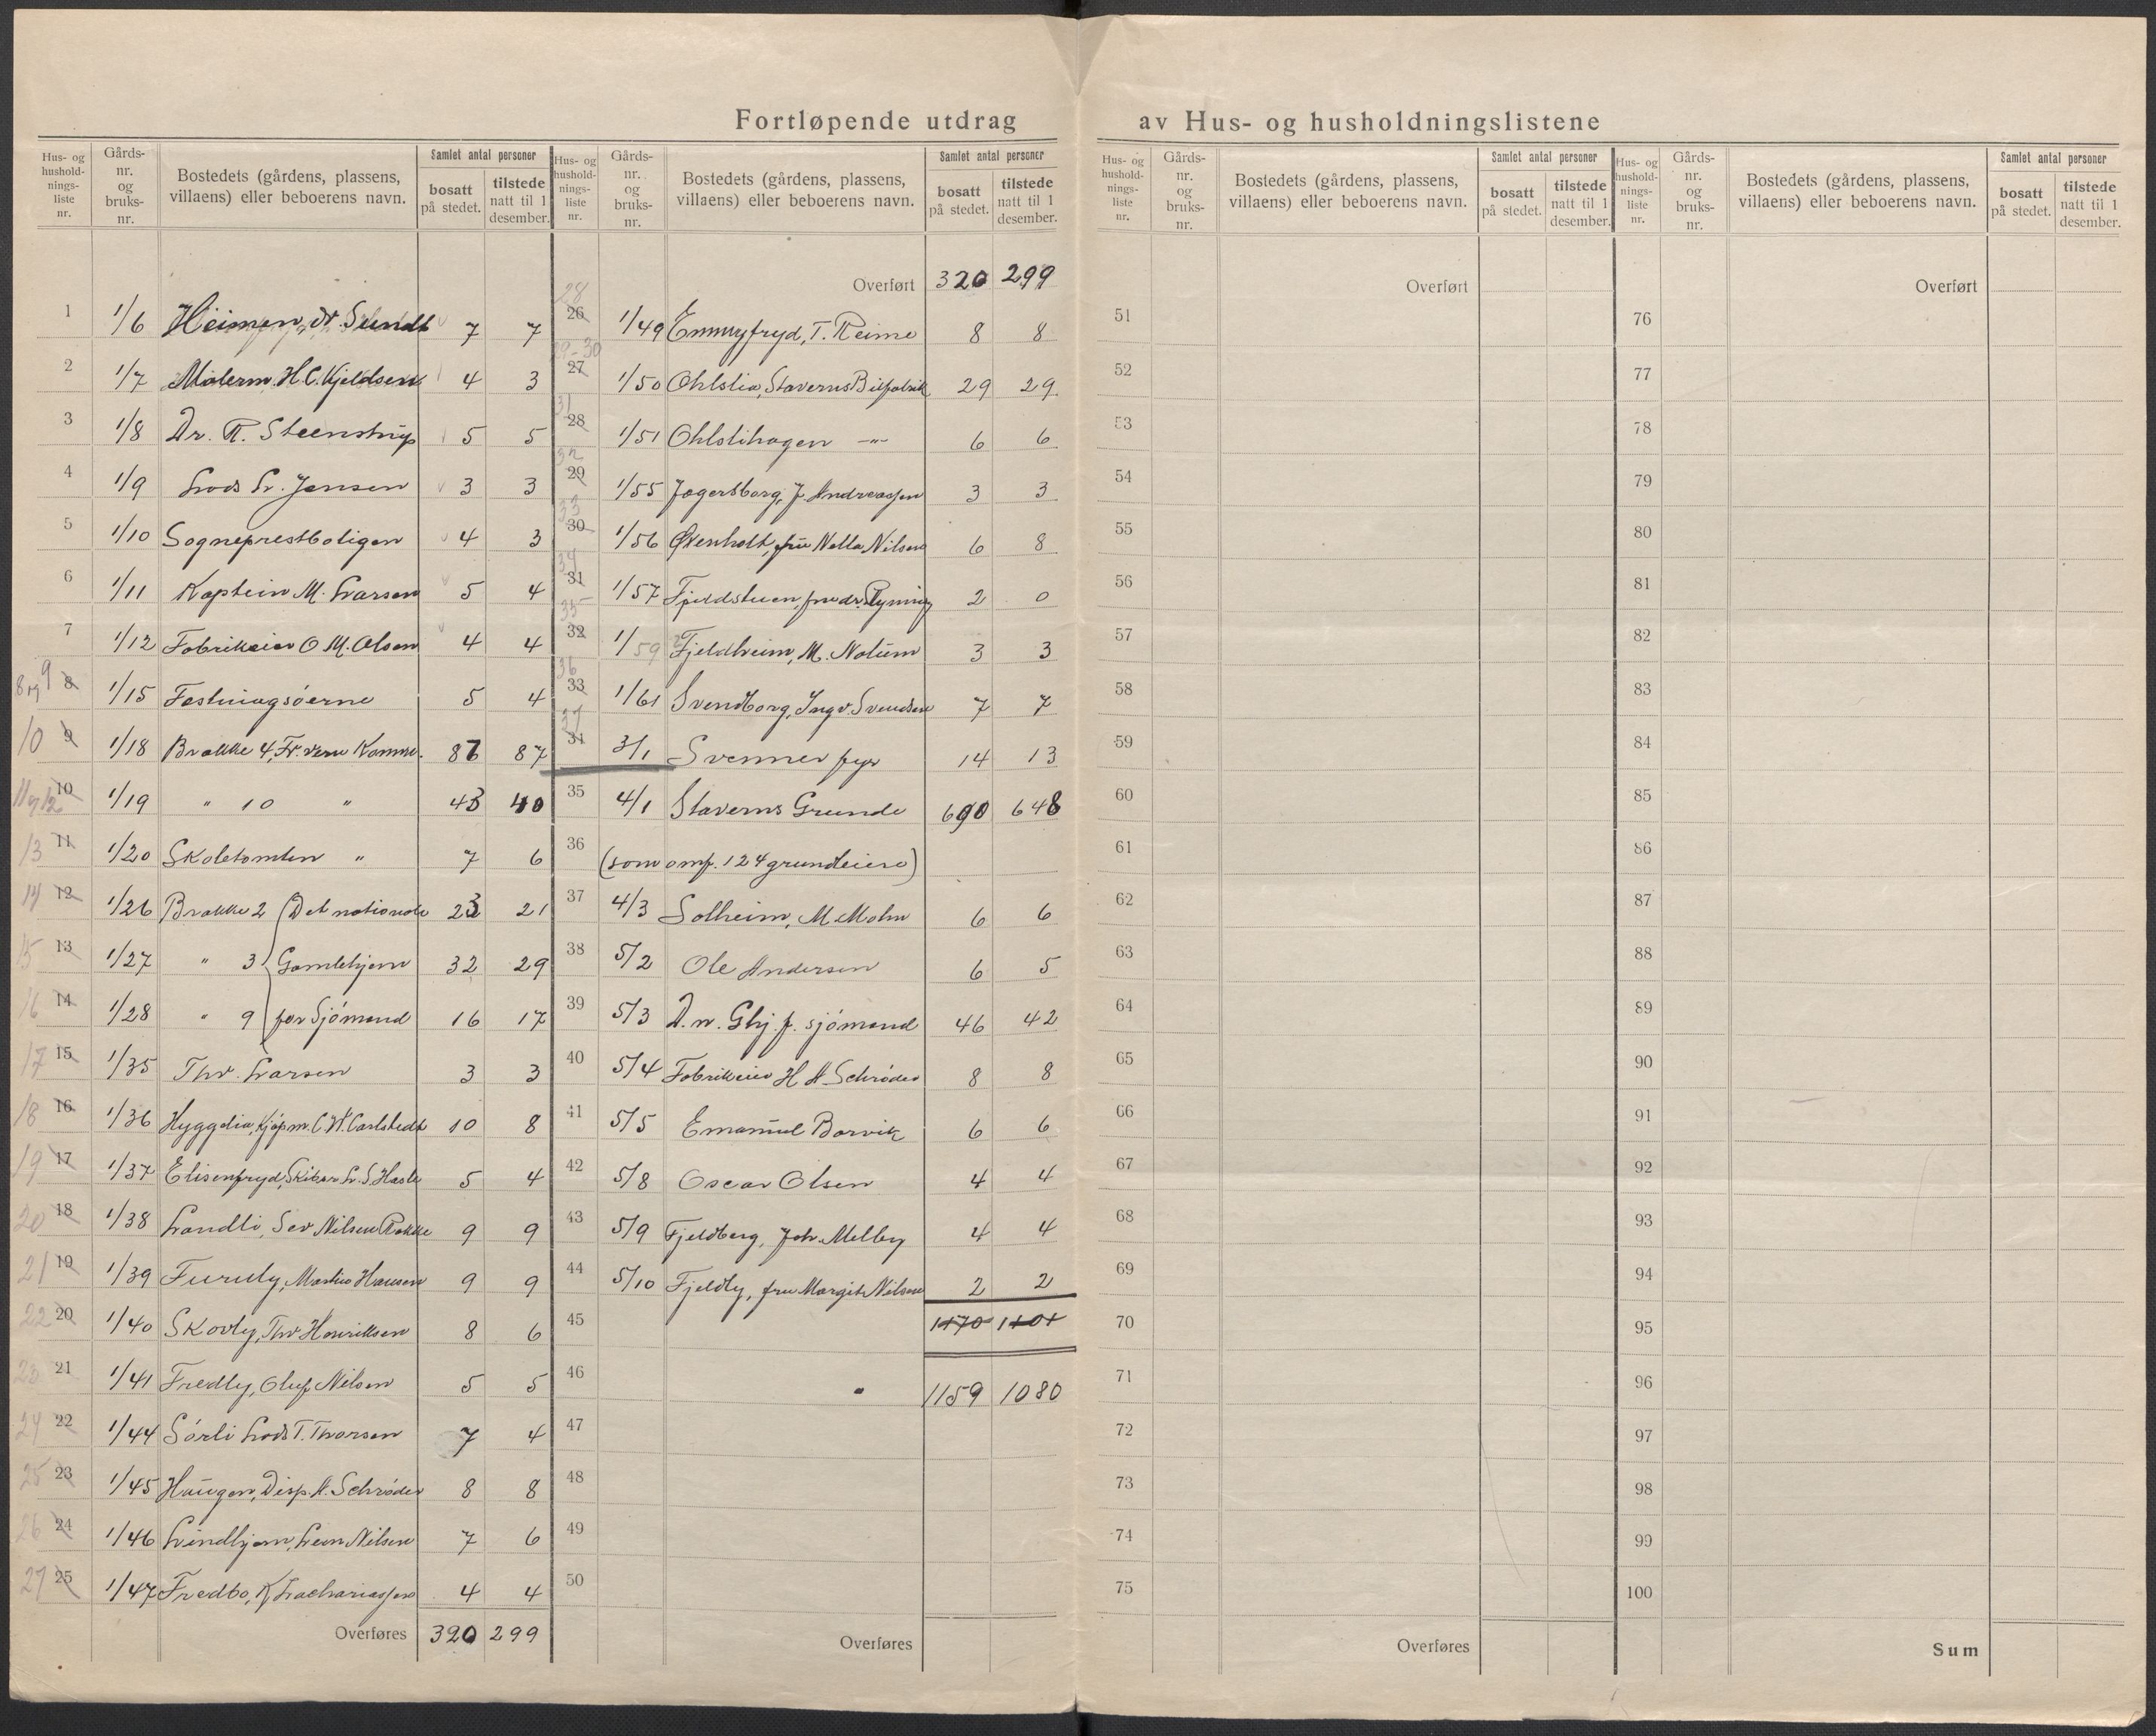 Fortløpende utdrag av Hus- og husholdningslistene
Hus- og hushold-nings-liste nr. | Gårds-nr. og bruks-nr. | Bostedets (gårdens, plassens, villaens) eller beboerens navn. | Samlet antal personer | bosatt på stedet. | tilstede natt til 1 desember.
1 1/6 Heimen, dr. Sundt 7 7
2 1/7 Malerm. H.C. Kjeldsen 4 3
3 1/8 Dr. R. Steenstrup 5 5
4 1/9 Lods L. Jensen 3 3
5 1/10 Sogneprestboligen 4 3
6 1/11 Kaptein M. Larsen 5 4
7 1/12 Fabrikeier O M. Olsen 4 4
8 og 9 8 1/15 Festningsöerne 5 4
10 9 1/18 Brakke 4, Fr. vern Komm. 87 87
11 og 12 10 1/19 " 10 " 43 40
13 11 1/20 Skoletomten " 7 6
14 12 1/26 Brakke 2 (Det nationale 23 21
15 13 1/27 " 3 Gamlehjem 32 29
16 14 1/28 " 9 for Sjömænd 16 17
17 15 1/35 Thv. Larsen 3 3
18 16 1/36 Hyggelia, Kjøpm. C.W. Carlstedt 10 8
19 17 1/37 Elisenfryd, Skibsr. L. S. Hasle 5 4
20 18 1/38 Landli, Sev Nilsen Rakke 9 9
21 19 1/39 Furuly, Martin Hansen 9 9
22 20 1/40 Skovly, Thv Henriksen 8 6
23 21 1/41 Fredly, Oluf Nilsen 5 5
24 22 1/44 Sörli Lods T. Thorsen 7 4
25 23 1/45 Haugen, Disp. A. Schrøder 8 8
26 24 1/46 Lindhjem, Nilsen 7 6
27 25 1/47 Fredbo, K. Zachariassen 4 4
Overføres 320 299
Hus- og hushold-nings-liste nr. | Gårds-nr. og bruks-nr. | Bostedets (gårdens, plassens, villaens) eller beboerens navn. | Samlet antal personer | bosatt på stedet. | tilstede natt til 1 desember.
Overført 320 299
28 26 1/49 Emmyfryd, T. Reime 8 8
29-30 27 1/50 Ohlslia, Staverns Bilfabrik 29 29
31 28 1/51 Ohlslihagen -"- 6 6
32 29 1/55 Jegersborg, J. Andreassen 3 3
33 30 1/56 Øxenholt, fru Nella Nilsen 6 8
34 31 1/57 Fjeldstuen, fru dr. Ryning 2 0
35 32 1/59 Fjeldheim, M. Nalum 3 3
36 33 1/61 Svendborg, Ingv. Svendsen 7 7
37 34 3/1 Svenner fyr 14 13
35 4/1 Staverns Grunde 690 648
36 (som omf. 124 grundeiere)
37 4/3 Solheim, M Mohn 6 6
38 5/2 Ole Andersen 6 5
39 5/3 D. n. Ghj. f. sjömænd 46 42
40 5/4 Fabrikeier H A Schrøder 8 8
41 5/5 Emanuel Borvik 6 6
42 5/8 Oscar Olsen 4 4
43 5/9 Fjeldberg, Joh. Melby 4 4
44 5/10 Fjeldly, fru Margit Nilsen 2 2
45 1170 1101
46 1159 1080
47
48
49
50
Overføres
Hus- og hushold-nings-liste nr. | Gårds-nr. og bruks-nr. | Bostedets (gårdens, plassens, villaens) eller beboerens navn. | Samlet antal personer | bosatt på stedet. | tilstede natt til 1 desember.
Overført
51
52
53
54
55
56
57
58
59
60
61
62
63
64
65
66
67
68
69
70
71
72
73
74
75
Overføres
Hus- og hushold-nings-liste nr. | Gårds-nr. og bruks-nr. | Bostedets (gårdens, plassens, villaens) eller beboerens navn. | Samlet antal personer | bosatt på stedet. | tilstede natt til 1 desember.
Overført
76
77
78
79
80
81
82
83
84
85
86
87
88
89
90
91
92
93
94
95
96
97
98
99
100
Sum